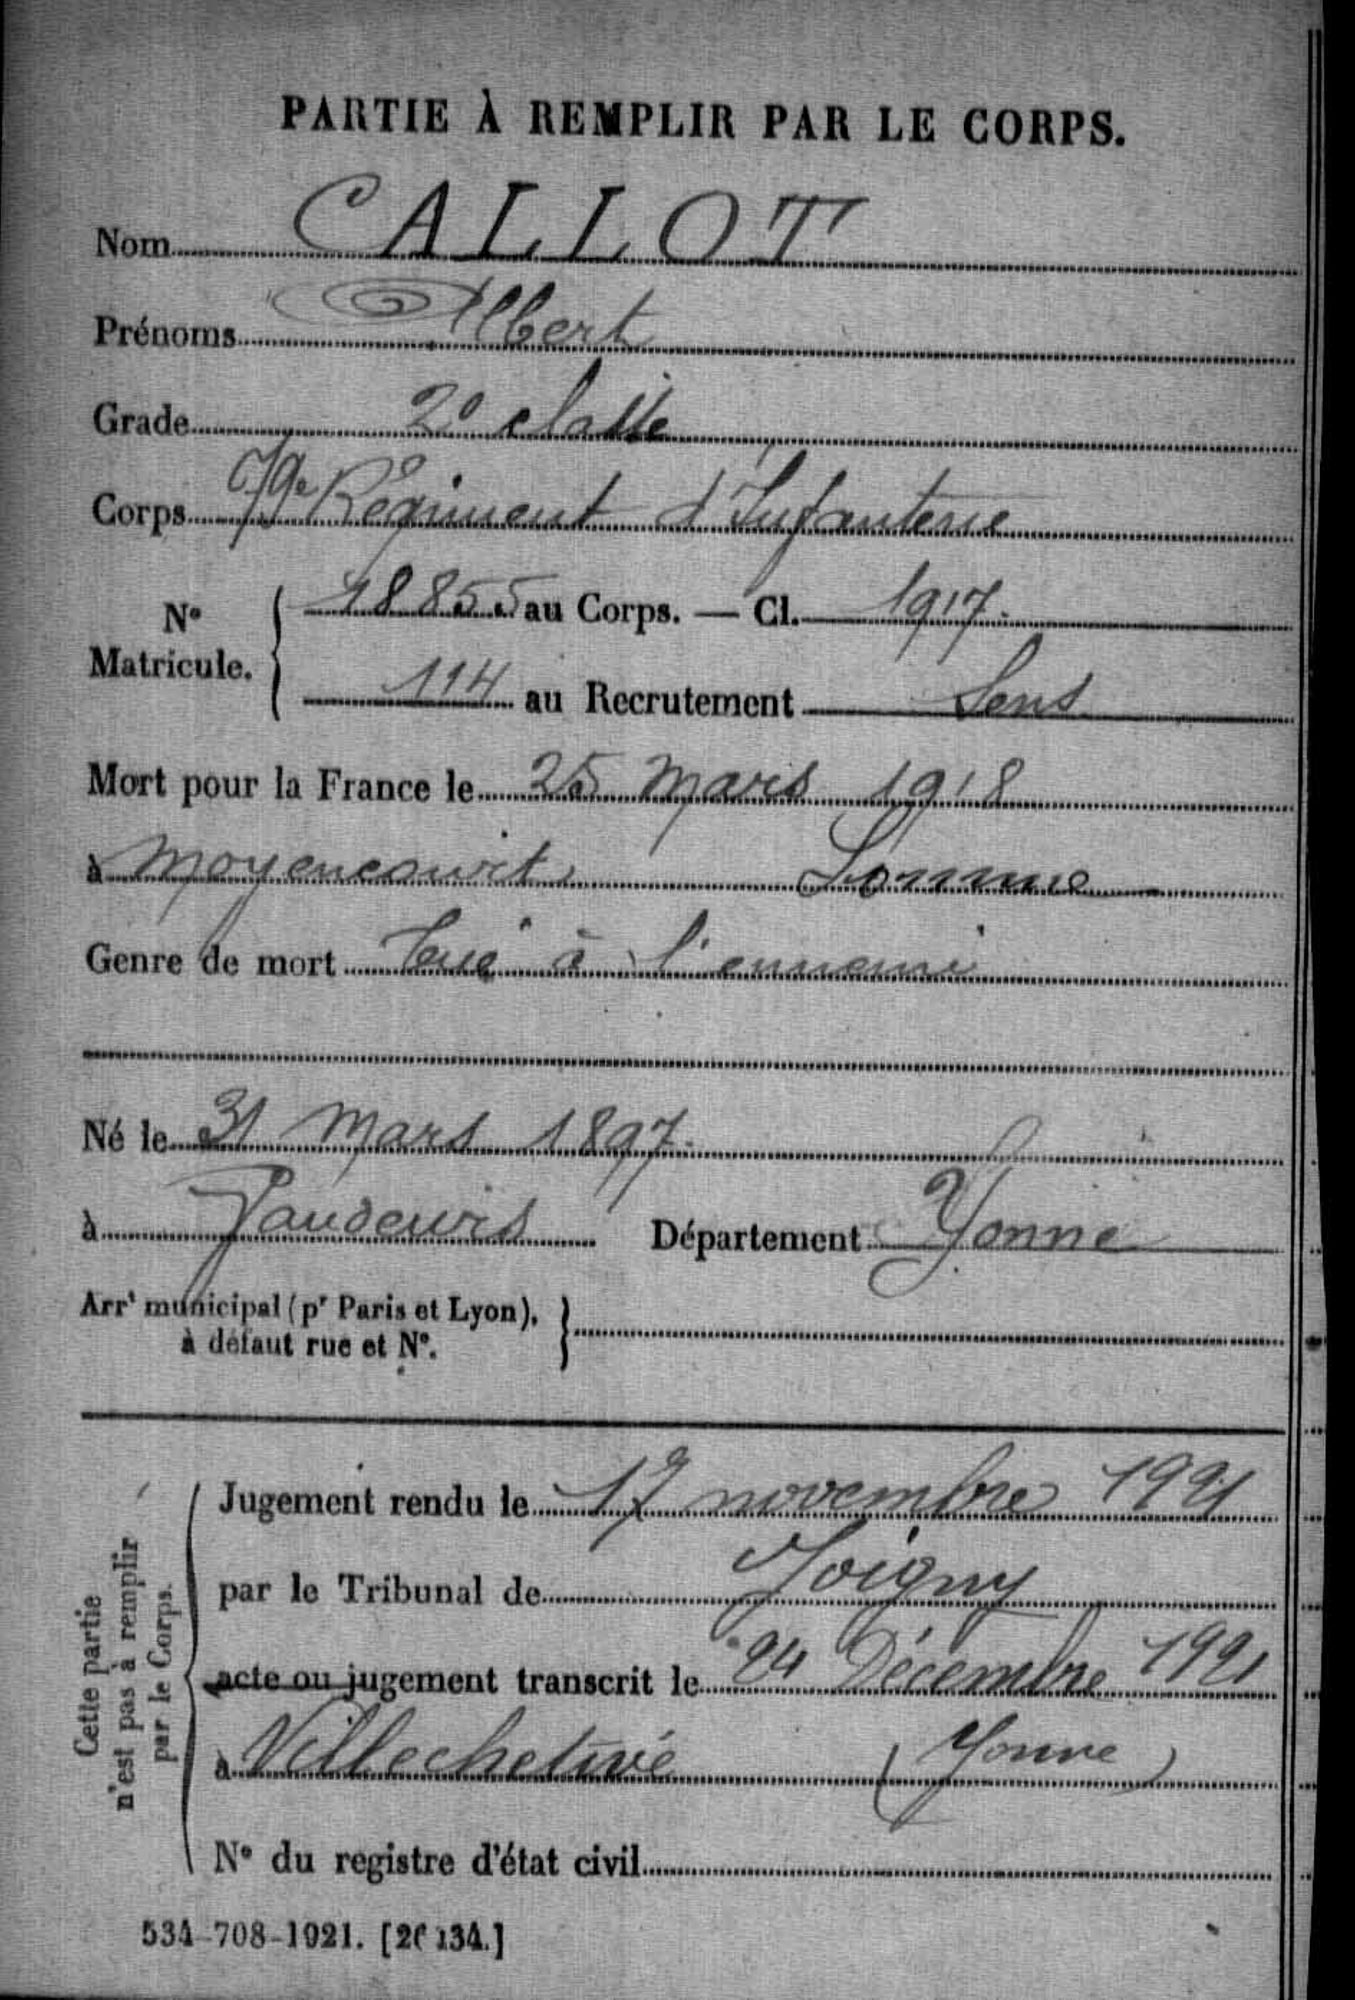 PARTIE À REMPLIR PAR LE CORPS.
Nom CALLOT
Prénoms Albert
Grade 2e classe
Corps 79e Régiment d'Infanterie
No Matricule. 18855 au Corps. — Cl. 1917.
114 au Recrutement Sens
Mort pour la France le 25 Mars 1918
à Moyencourt Somme
Genre de mort Tué à l'ennemi
Né le 31 Mars 1897.
à Vaudeurs Département Yonne
Arrt municipal (pr Paris et Lyon),
à défaut rue et No.
Cette partie
n'est pas à remplir
par le Corps.
Jugement rendu le 17 novembre 1921
par le Tribunal de Joigny
acte ou jugement transcrit le 24 Décembre 1921
à Villechetive (Yonne)
No du registre d'état civil
534-708-1921. [26134.]